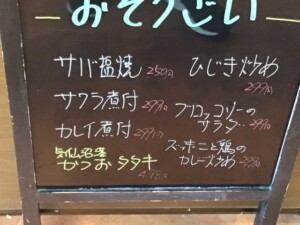 おそうざい
サバ塩焼 250円
サワラ煮付 299円
カレイ煮付 299円
気仙沼産
かつおタタキ
ひじき炒め
299円
ブロッコリーの
サラダ‥299円
ズッキーニと鶏の
カレー炒め 299円